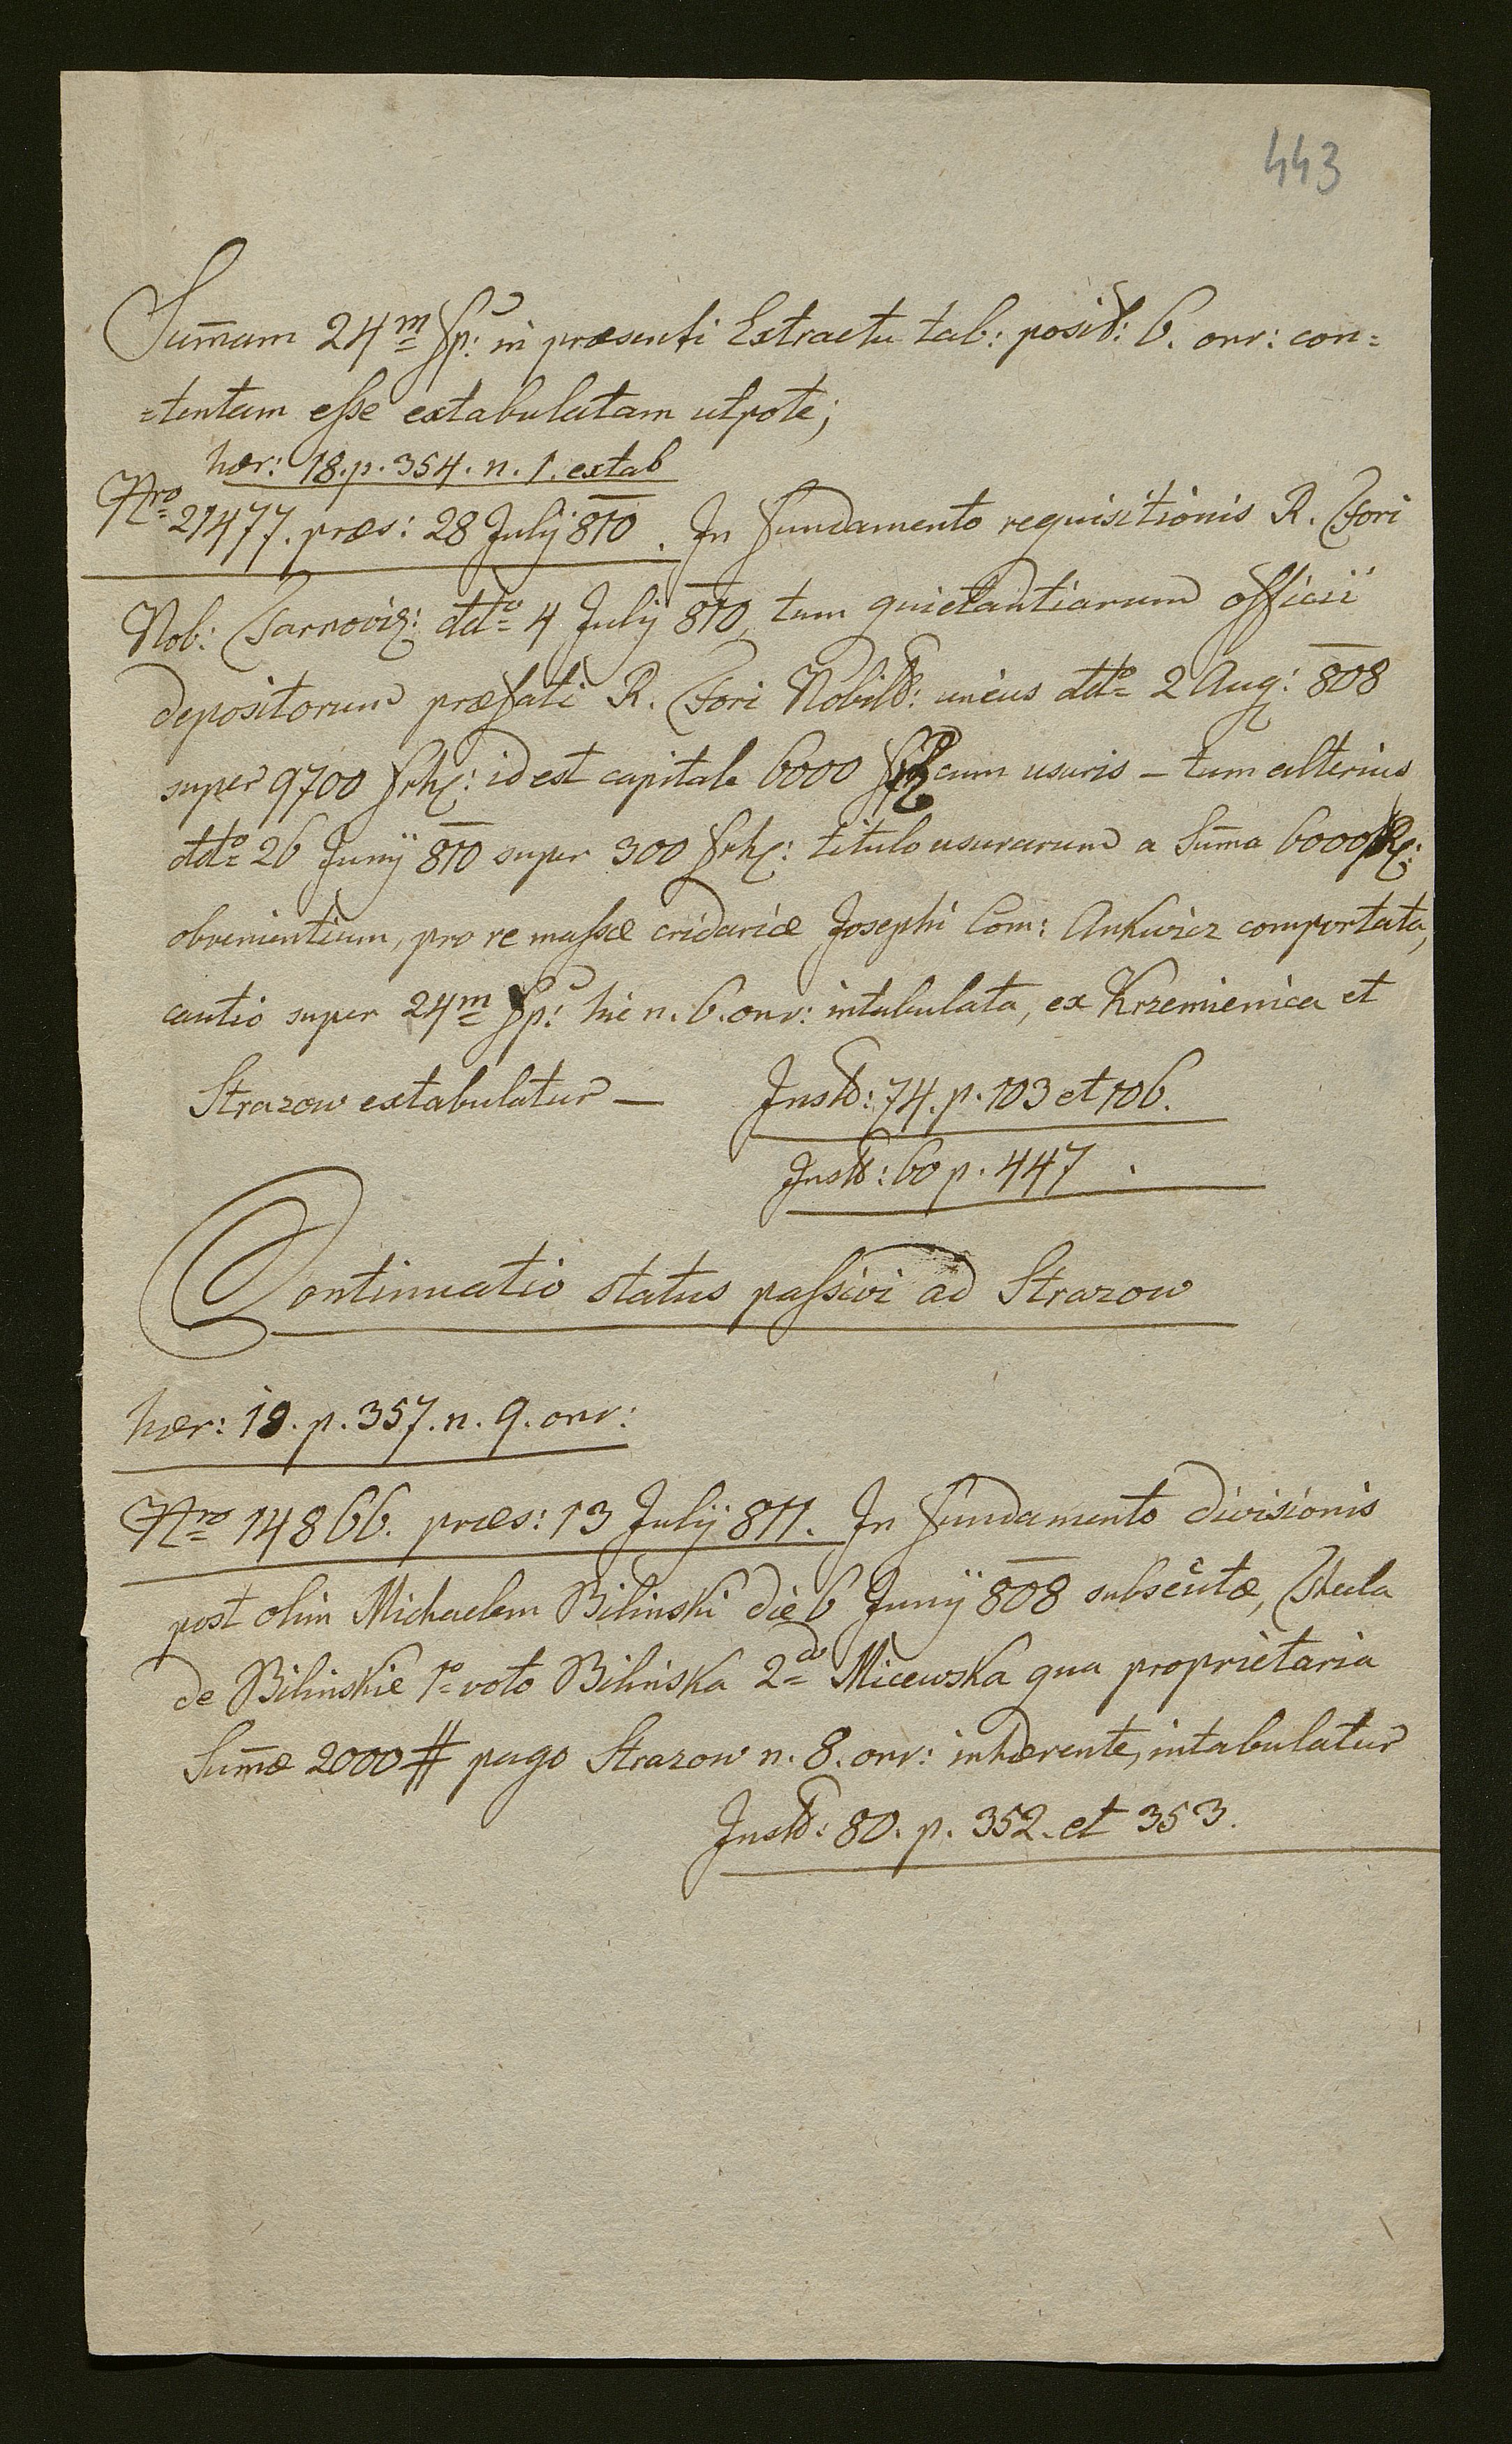 443
Sum̄am 24m̲ fp: in præsenti Extractu tab: posit: 6. onr: con=
=tentam esse extabulatam utpote;
hær: 18. p. 354. n. 1. extab
Nro 21477. præs: 28 July 810. In fundamento requisitionis R. Fori
Nob: Tarnovi: ddto 4 July 810, tum quietantiarum officii
depositorum præfati R. Fori Nobilit: unius ddto 2 Aug: 808
super 9700 frh: id est capitale 6000 cum usuris – tum alterius
ddto 26 Juny 810 super 300 frh: titulo usurarum a Sum̄a 6000
obvenientium, pro re massæ cridariæ Josephi Com: Ankwicz comportata,
cautio super 24m̲ fp: hic n. 6. onr: intabulata, ex Krzemienica et
Strazow extabulatur —
Inst: 74. p. 103 et 106.
Inst: 60 p. 447.
Continuatio status passivi ad Strazow
hær: 18. p. 357. n. 9. onr:
Nro 14866. præs: 13 July 811. In fundamento divisionis
post olim Michaelem Bilinski die 6 Juny 808 subsecutæ, Thecla
de Bilinskie 1o voto Bilinska 2do Micewska qua proprietaria
Sum̄æ 2000 # pago Strazow n. 8. onr: inhærente, intabulatur
Inst: 80. p. 352. et 353.